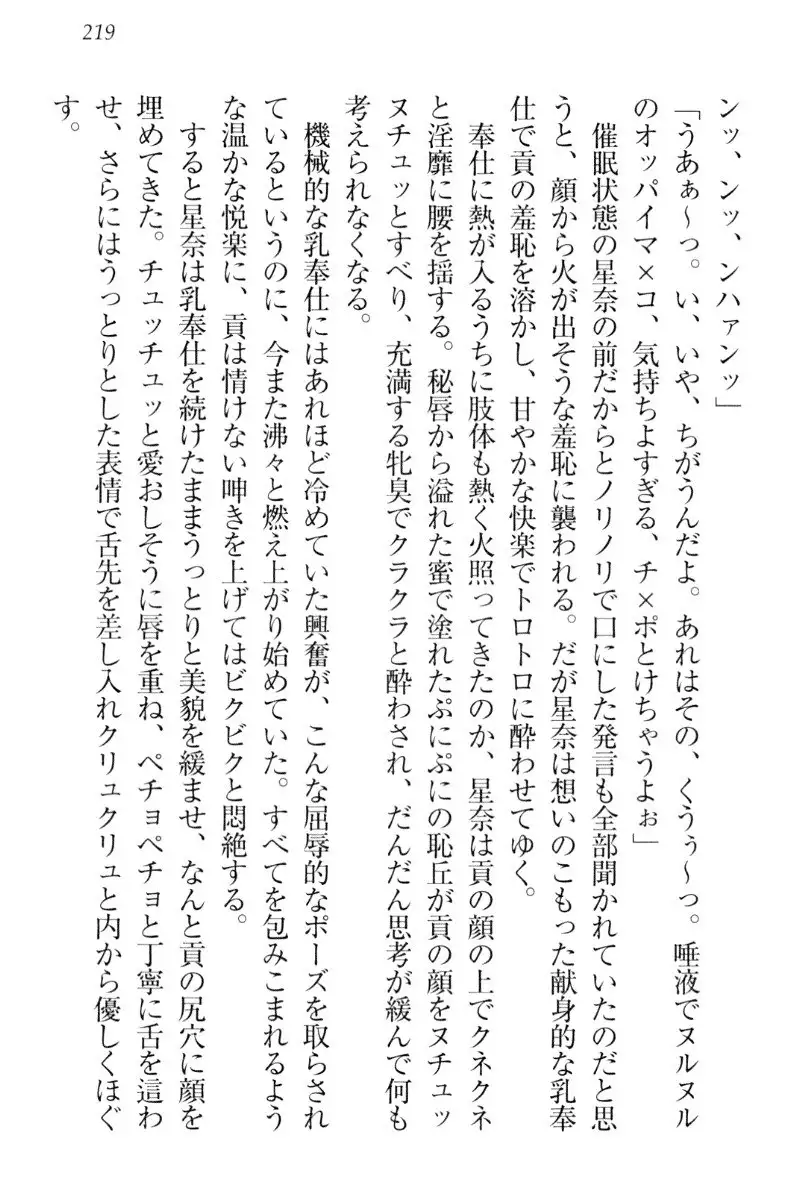 219
ンッ、ンッ、ンハァンッ」
「うあぁ～っ。い、いや、ちがうんだよ。あれはその、くうぅ～っ。唾液でヌルヌル
のオッパイマ×コ、気持ちよすぎる、チ×ポとけちゃうよぉ」
催眠状態の星奈の前だからとノリノリで口にした発言も全部聞かれていたのだと思
うと、顔から火が出そうな羞恥に襲われる。だが星奈は想いのこもった献身的な乳奉
仕で貢の羞恥を溶かし、甘やかな快楽でトロトロに酔わせてゆく。
奉仕に熱が入るうちに肢体も熱く火照ってきたのか、星奈は貢の顔の上でクネクネ
と淫靡に腰を揺する。秘唇から溢れた蜜で塗れたぷにぷにの恥丘が貢の顔をヌチュッ
ヌチュッとすべり、充満する牝臭でクラクラと酔わされ、だんだん思考が緩んで何も
考えられなくなる。
機械的な乳奉仕にはあれほど冷めていた興奮が、こんな屈辱的なポーズを取らされ
ているというのに、今また沸々と燃え上がり始めていた。すべてを包みこまれるよう
な温かな悦楽に、貢は情けない呻きを上げてはビクビクと悶絶する。
すると星奈は乳奉仕を続けたままうっとりと美貌を緩ませ、なんと貢の尻穴に顔を
埋めてきた。チュッチュッと愛おしそうに唇を重ね、ペチョペチョと丁寧に舌を這わ
せ、さらにはうっとりとした表情で舌先を差し入れクリュクリュと内から優しくほぐ
す。